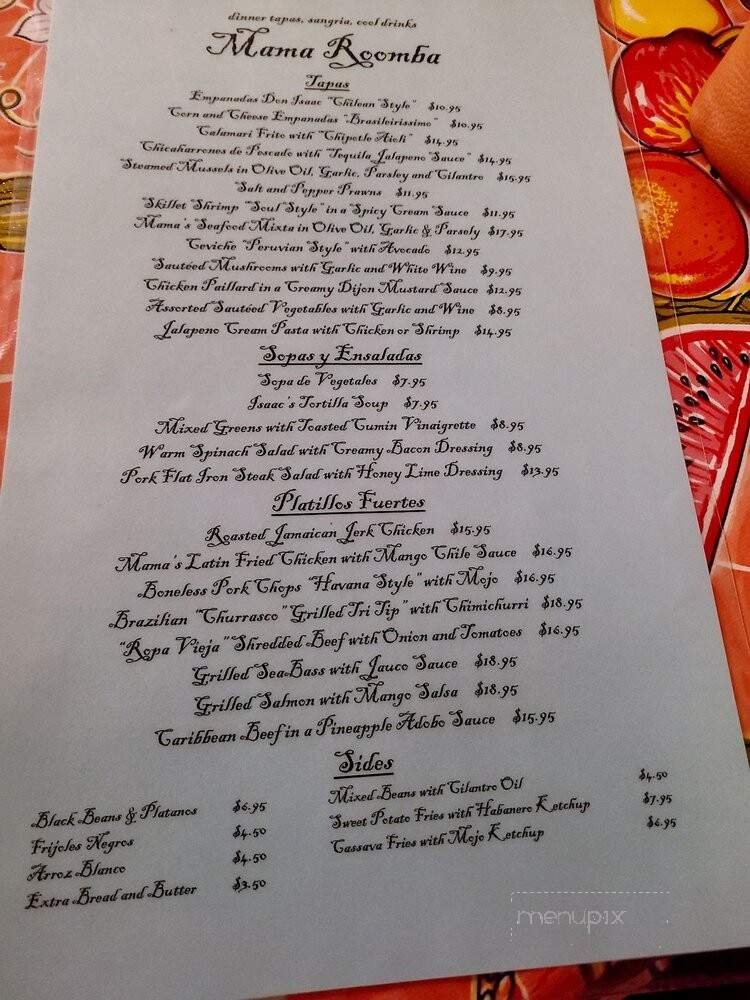 dinner tapas, sangria, cool drinks
Mama Roomba
Tapas
Empanadas Don Isaac "Chilean Style" $10.95
Corn and Cheese Empanadas "Brasileirissimo" $10.95
Calamari Frito with "Chipotle Aioli" $14.95
Chicaharrones de Pescado with "Tequila Jalapeno Sauce" $14.95
Steamed Mussels in Olive Oil, Garlic, Parsley and Cilantro $15.95
Salt and Pepper Prawns $11.95
Skillet Shrimp "Soul Style" in a Spicy Cream Sauce $11.95
Mama's Seafood Mixta in Olive Oil, Garlic & Parsely $17.95
Ceviche "Peruvian Style" with Avocado $12.95
Sautéed Mushrooms with Garlic and White Wine $9.95
Chicken Paillard in a Creamy Dijon Mustard Sauce $12.95
Assorted Sautéed Vegetables with Garlic and Wine $8.95
Jalapeno Cream Pasta with Chicken or Shrimp $14.95
Sopas y Ensaladas
Sopa de Vegetales $7.95
Isaac's Tortilla Soup $7.95
Mixed Greens with Toasted Cumin Vinaigrette $8.95
Warm Spinach Salad with Creamy Bacon Dressing $8.95
Pork Flat Iron Steak Salad with Honey Lime Dressing $13.95
Platillos Fuertes
Roasted Jamaican Jerk Chicken $15.95
Mama's Latin Fried Chicken with Mango Chile Sauce $16.95
Boneless Pork Chops "Havana Style" with Mojo $16.95
Brazilian "Churrasco" Grilled Tri Tip" with Chimichurri $18.95
"Ropa Vieja" Shredded Beef with Onion and Tomatoes $16.95
Grilled Sea Bass with Jauco Sauce $18.95
Grilled Salmon with Mango Salsa $18.95
Caribbean Beef in a Pineapple Adobo Sauce $15.95
Sides
Black Beans & Platanos $6.95
Frijoles Negros $4.50
Arroz Blanco $4.50
Extra Bread and Butter $3.50
Mixed Beans with Cilantro Oil $4.50
Sweet Potato Fries with Habanero Ketchup $7.95
Cassava Fries with Mojo Ketchup $6.95
menupix